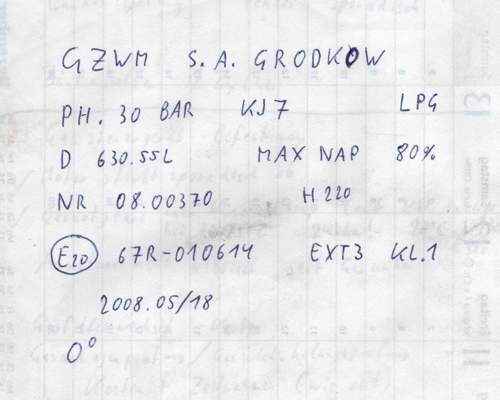 GZWM S.A. GRODKOW
PH. 30 BAR KJ7 LPG
D 630.55L MAX NAP 80%
NR 08.00370 H220
E20 67R-010614 EXT3 KL.1
2008.05/18
0°